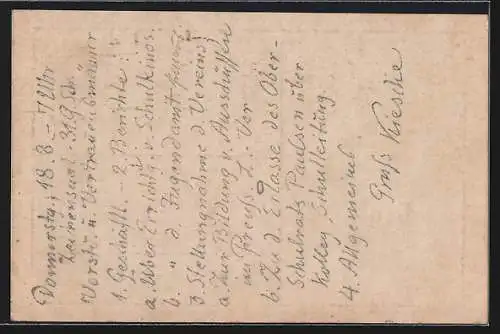 Donnerstg, 18.8. – 7 Uhr
Zeichensaal 319. Sch.
Vorstd. u. Vertrauensmänner
1. Geschäftl. – 2. Berichte:
a. Über Erichtg. v. Schulkinos.
b. " d. Jugendamt
3. Stellungnahme d. Vereins:
a. Zur Bildung v. Ausschüssen
im Preuß. L. Ver
b. Zu d. Erlasse des Ober-
Schulrats Paulsen über
Kolleg. Schulleitung.
4. Allgemeines.
Gruß Kiesche